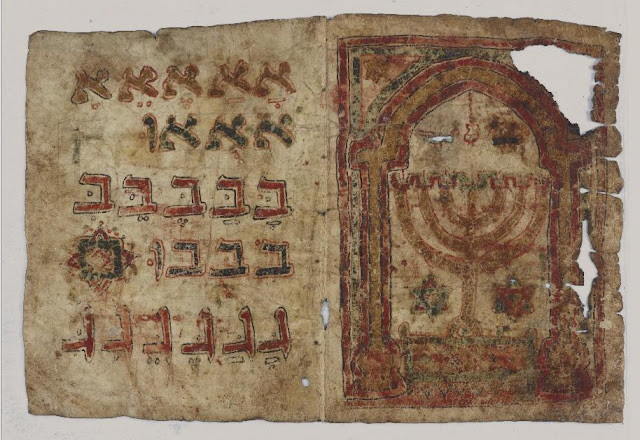 א א א א א
א א או
ב ב ב ב ב
ב ב בו
ג ג ג ג ג ג